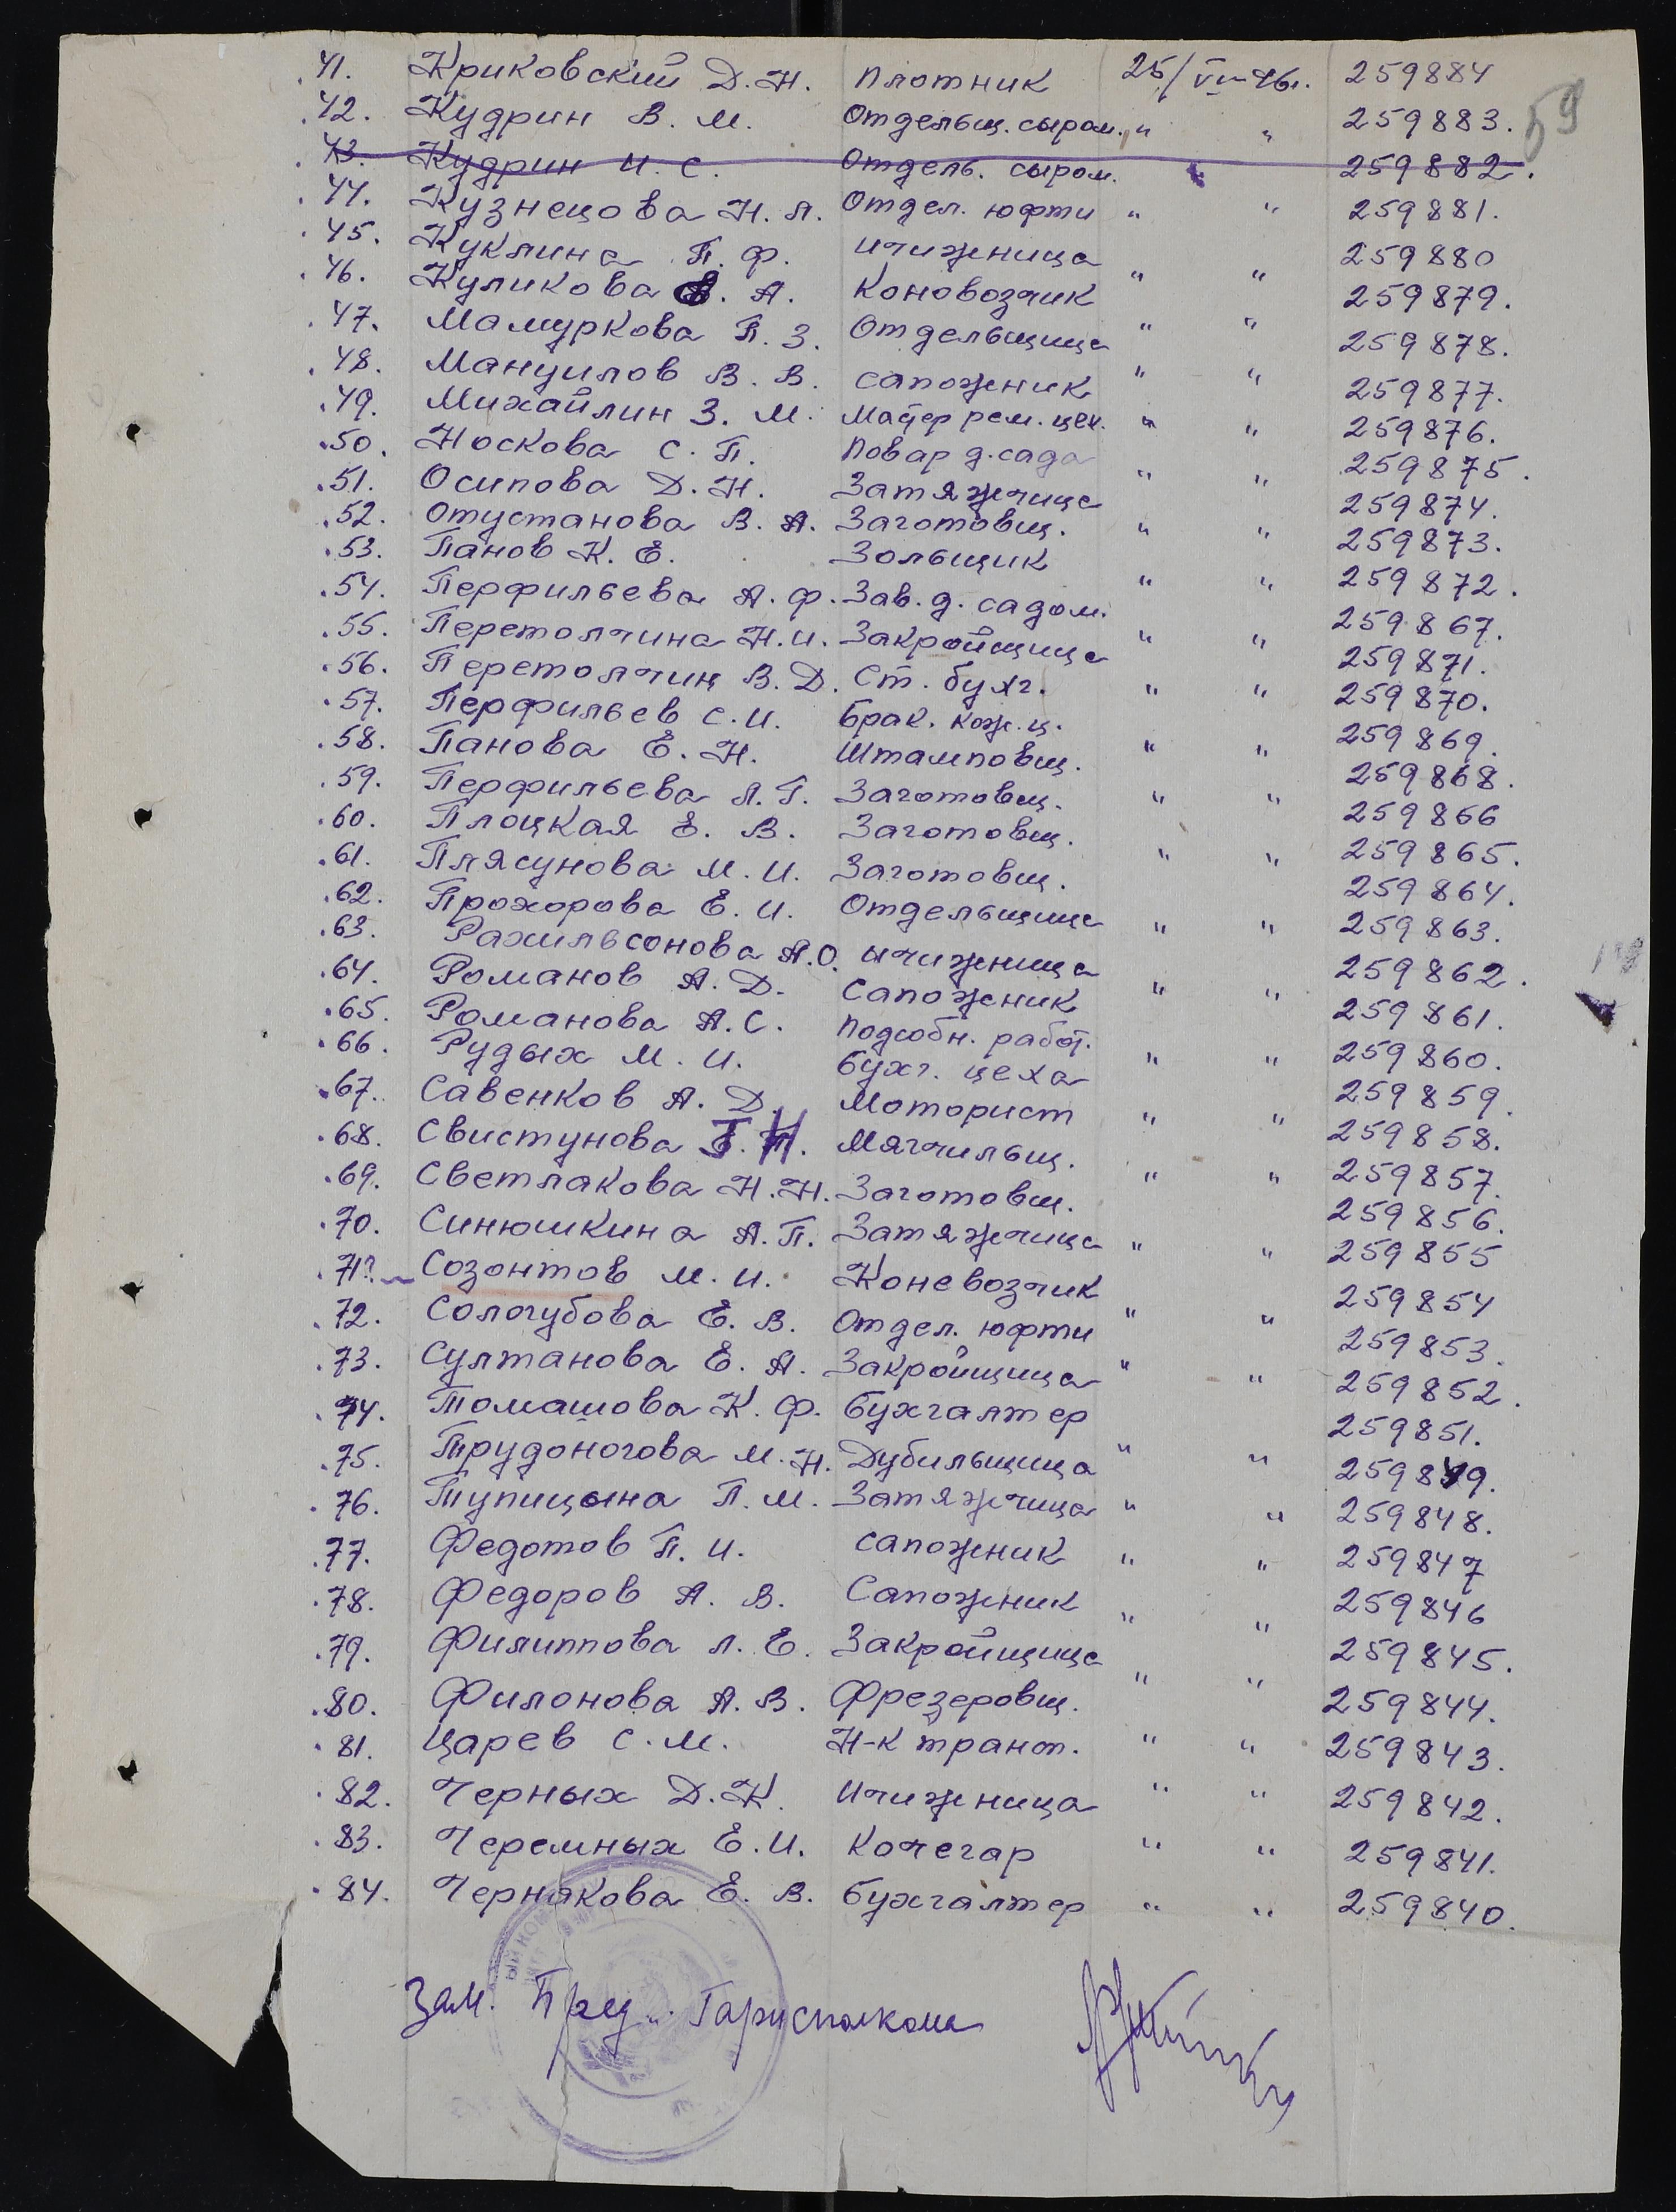 59
41. Криковский Д.Н. Плотник 25/VI-46г. 259884
42. Кудрин В.М. Отдельщ. сыром. " " 259883.
43. Кудрин И.С. Отдель. сыром. 259882.
44. Кузнецова Н.А. Отдел. юфти " " 259881.
45. Куклина П.Ф. Ичижница " " 259880
46. Куликова Е.А. Коновозчик " " 259879.
47. Мамуркова П.З. Отдельщица " " 259878.
48. Мануилов В.В. Сапожник " " 259877.
49. Михайлин З.М. Мастер рем. цех. " " 259876.
50. Носкова С.П. Повар д.сада " " 259875.
51. Осипова Д.Н. Затяжчица " " 259874.
52. Отустанова В.А. Заготовщ. " " 259873.
53. Панов К.Е. Зольщик " " 259872.
54. Перфильева А.Ф. Зав.д.садом. " " 259867.
55. Перетолчина Н.И. Закройщица " " 259871.
56. Перетолчин В.Д. Ст. бухг. " " 259870.
57. Перфильев С.И. Брак. кож.ц. " " 259869.
58. Панова Е.Н. Штамповщ. " " 259868.
59. Перфильева Л.Г. Заготовщ. " " 259866
60. Плоцкая Е.В. Заготовщ. " " 259865.
61. Плясунова М.И. Заготовщ. " " 259864.
62. Прохорова Е.И. Отдельщица " " 259863.
63. Рахильсонова А.О. Ичижница " " 259862.
64. Романов А.Д. Сапожник " " 259861.
65. Романова А.С. Подсобн. работ. " " 259860.
66. Рудых М.И. Бухг. цеха " " 259859.
67. Савенков А.Д. Моторист " " 259858.
68. Свистунова Г.Н. Мягчильщ. " " 259857.
69. Светлакова Н.Н. Заготовщ. " " 259856.
70. Синюшкина А.П. Затяжчица " " 259855
71? Созонтов М.И. Коневозчик " " 259854
72. Сологубова Е.В. Отдел. юфти " " 259853.
73. Султанова Е.А. Закройщица " " 259852.
74. Томашова К.Ф. Бухгалтер " " 259851.
75. Трудоногова М.Н. Дубильщица " " 259849.
76. Тупицына П.М. Затяжчица " " 259848.
77. Федотов П.И. Сапожник " " 259847
78. Федоров А.В. Сапожник " " 259846
79. Филиппова Л.Е. Закройщица " " 259845.
80. Филонова А.В. Фрезеровщ. " " 259844.
81. Царев С.М. Н-к трансп. " " 259843.
82. Черных Д.К. Ичижница " " 259842.
83. Черемных Е.И. Кочегар " " 259841.
84. Чернакова Е.В. Бухгалтер " " 259840.
Зам. Пред. Горисполкома